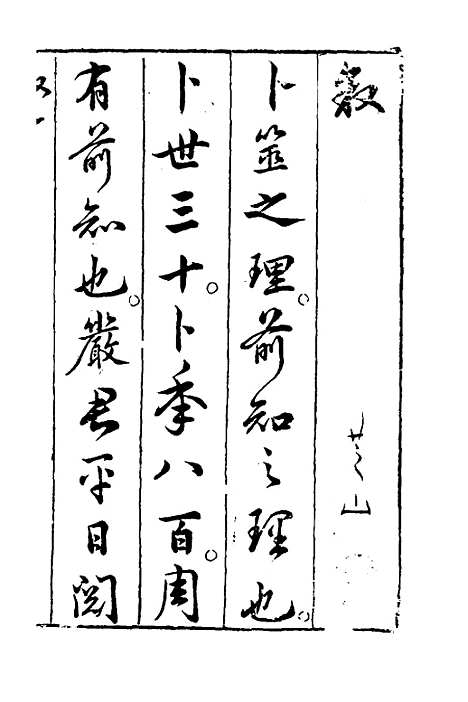 叙
芝山
卜筮之理。前知之理也。
卜世三十。卜季八百。周
有前知也。嚴君平日閲